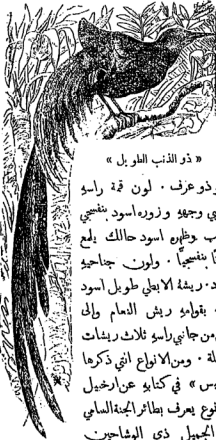 « ذو الذنب الطويل »
ذو عرف . لون قمة راسه
ي وجهه وزوره اسود بنفسجي
ب وظهره اسود حالك يلمع
بنفسجيًا . ولون جناحيه
د . ريشه الابطي طويل اسود
بقوامه ريش النعام والى
من جانبي راسه ثلاث ريشات
لة . ومن الانواع التي ذكرها
س » في كتابه عن ارخبيل
نوع يعرف بطائر الجنة السامي
الجميل ذي الوشاحين